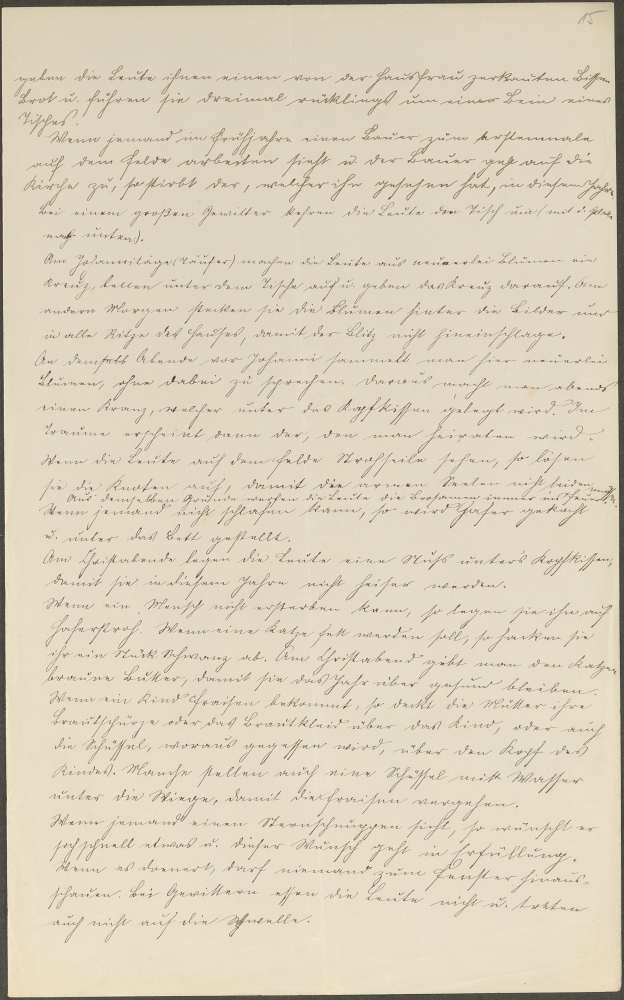 15
geben die Leute ihnen einen von der Hausfrau zerkauten Bissen
Brot u. führen sie dreimal rücklings um einer Bein eines
Tisches.
Wenn jemand im Frühjahre einen Bauer zum erstenmale
auf dem Felde arbeiten sieht u. der Bauer geht auf die
Kirche zu, so stirbt der, welcher ihn gesehen hat, in diesem Jahre.
Bei einem großen Gewitter kehren die Leute den Tisch um (mit d. Platte
nach unten).
Am Johannitage (Täufer) machen die Leute aus neunerlei Blumen ein
Kreuz, stellen unter dem Tische auf u. geben das Kreuz darauf. Am
andern Morgen stecken sie die Blumen hinter die Bilder und
in alle Ritze des Hauses, damit der Blitz nicht hineinschlage.
An demselb. Abende vor Johanni sammelt man hier neunerlei
Blumen, ohne dabei zu sprechen. Daraus macht man abends
einen Kranz, welcher unter das Kopfkissen gelegt wird. Im
Traume erscheint dann der, den man heiraten wird.
Wenn die Leute auf dem Felde Strohseile sehen, so lösen
sie die Knoten auf, damit die armen Seelen nicht leiden müssen.
Aus demselben Grunde werfen die Leute die Brosamen immer ins Feuer.
Wenn jemand nicht schlafen kann, so wird Hafer gekocht
u. unter das Bett gestellt.
Am Christabende legen die Leute eine Nuß unters Kopfkissen,
damit sie in diesem Jahre nicht heiser werden.
Wenn ein Mensch nicht ersterben kann, so legen sie ihn auf
Haferstroh. Wenn eine Katze fett werden soll, so hacken sie
ihr ein Stück Schwanz ab. Am Christabend gibt man den Katzen
braune Butter, damit sie das Jahr über gesund bleiben.
Wenn ein Kind Fraisen bekommt, so deckt die Mutter ihre
Brautschürze oder das Brautkleid über das Kind, oder auch
die Schüssel, woraus gegessen wird, über den Kopf des
Kindes. Manche stellen auch eine Schüssel mit Wasser
unter die Wiege, damit die Fraisen vergehen.
Wenn jemand einen Sternschnuppen sieht, so wünscht er
sich schnell etwas u. dieser Wunsch geht in Erfüllung.
Wenn es donnert, darf niemand zum Fenster hinaus-
schauen. Bei Gewittern essen die Leute nicht u. treten
auch nicht auf die Schwelle.